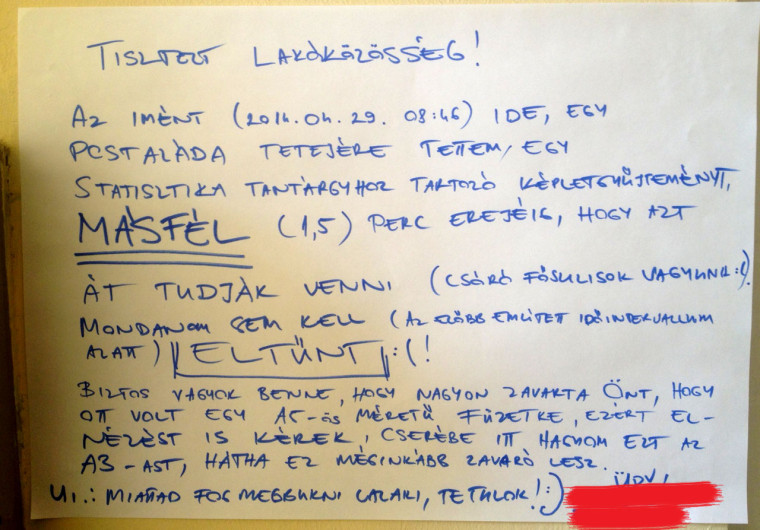 TISZTELT LAKÓKÖZÖSSÉG!
AZ IMÉNT (2014.04.29. 08:46) IDE, EGY
POSTALÁDA TETEJÉRE TETTEM, EGY
STATISZTIKA TANTÁRGYHOZ TARTOZÓ KÉPLETGYŰJTEMÉNYT,
MÁSFÉL (1,5) PERC EREJÉIG, HOGY AZT
ÁT TUDJÁK VENNI (CSÓRÓ FŐSULISOK VAGYUNK :().
MONDANOM SEM KELL (AZ ELŐBB EMLÍTETT IDŐINTERVALLUM
ALATT) ELTŰNT :(!
BIZTOS VAGYOK BENNE, HOGY NAGYON ZAVARTA ÖNT, HOGY
OTT VOLT EGY A5-ÖS MÉRETŰ FÜZETKE, EZÉRT EL-
NÉZÉST IS KÉREK, CSERÉBE ITT HAGYOM EZT AZ
A3-AST, HÁTHA EZ MÉGINKÁBB ZAVARÓ LESZ.
UI.: MIATTAD FOG MEGBUKNI VALAKI, TE TULOK! :) ÜDV!